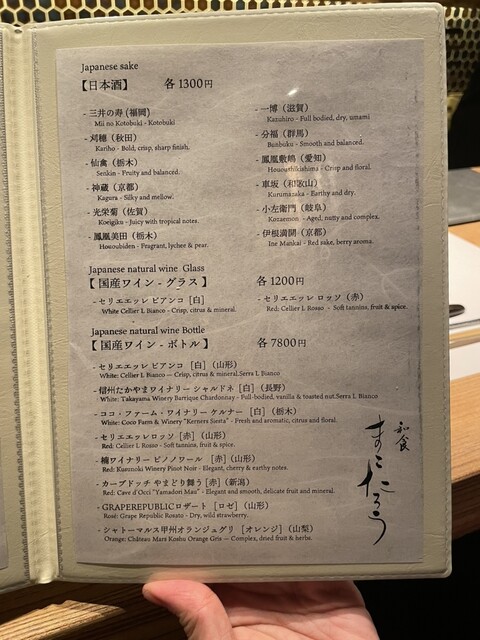 Japanese sake
【日本酒】 各 1300円
- 三井の寿 (福岡)
Mii no Kotobuki - Kotobuki
- 刈穂（秋田）
Kariho - Bold, crisp, sharp finish.
- 仙禽（栃木）
Senkin - Fruity and balanced.
- 神蔵（京都）
Kagura - Silky and mellow.
- 光栄菊（佐賀）
Koeigiku - Juicy with tropical notes.
- 鳳凰美田（栃木）
Hououbiden - Fragrant, lychee & pear.
- 一博（滋賀）
Kazuhiro - Full bodied, dry, umami
- 分福（群馬）
Bunbuku - Smooth and balanced.
- 鳳凰敷嶋（愛知）
Hououshikishima - Crisp and floral.
- 車坂（和歌山）
Kurumazaka - Earthy and dry.
- 小左衛門（岐阜）
Kozaemon - Aged, nutty and complex.
- 伊根満開（京都）
Ine Mankai - Red sake, berry aroma.
Japanese natural wine Glass
【国産ワイン - グラス】 各 1200円
- セリエエッレ ビアンコ［白］
White Cellier L Bianco - Crisp, citrus & mineral.
- セリエエッレ ロッソ（赤）
Red: Cellier L Rosso - Soft tannins, fruit & spice.
Japanese natural wine Bottle
【国産ワイン - ボトル】 各 7800円
- セリエエッレ ビアンコ［白］（山形）
White: Cellier L Bianco — Crisp, citrus & mineral.Serra L Bianco
- 信州たかやまワイナリー シャルドネ［白］（長野）
White: Takayama Winery Barrique Chardonnay - Full-bodied, vanilla & toasted nut.Serra L Bianco
- ココ・ファーム・ワイナリー ケルナー［白］（栃木）
White: Coco Farm & Winery "Kerners Siesta" - Fresh and aromatic, citrus and floral.
- セリエエッレロッソ［赤］（山形）
Red: Cellier L Rosso - Soft tannins, fruit & spice.
- 楠ワイナリー ピノノワール［赤］（山形）
Red: Kusunoki Winery Pinot Noir - Elegant, cherry & earthy notes.
- カーブドッチ やまどり舞う［赤］（新潟）
Red: Cave d'Occi "Yamadori Mau" - Elegant and smooth, delicate fruit and mineral.
- GRAPEREPUBLICロザート［ロゼ］（山形）
Rosé: Grape Republic Rosato - Dry, wild strawberry.
- シャトーマルス甲州オランジュグリ［オレンジ］（山梨）
Orange: Château Mars Koshu Orange Gris — Complex, dried fruit & herbs.
和食
まこたろう